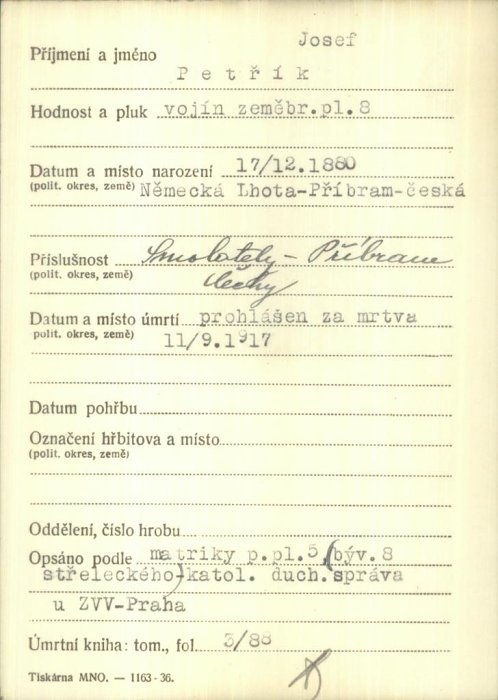 Josef
Příjmení a jméno
Petřík
Hodnost a pluk vojín zeměbr.pl.8
Datum a místo narození 17/12.1880
(polit. okres, země) Německá Lhota-Příbram-česká
Příslušnost Smolotely - Příbram
(polit. okres, země) Čechy
Datum a místo úmrtí prohlášen za mrtva
polit. okres, země) 11/9.1917
Datum pohřbu
Označení hřbitova a místo
(polit. okres, země)
Oddělení, číslo hrobu
Opsáno podle matriky p.pl.5,(býv.8
střeleckého)katol. duch.správa
u ZVV-Praha
Úmrtní kniha: tom., fol. 3/88
Tiskárna MNO. — 1163-36.